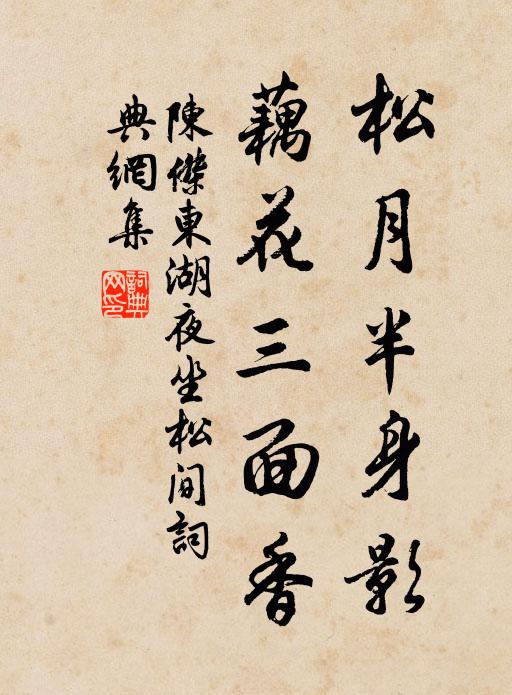 松月半身影
藕花三面香
陳傑東湖夜坐松间詞
典網集
詞典网印